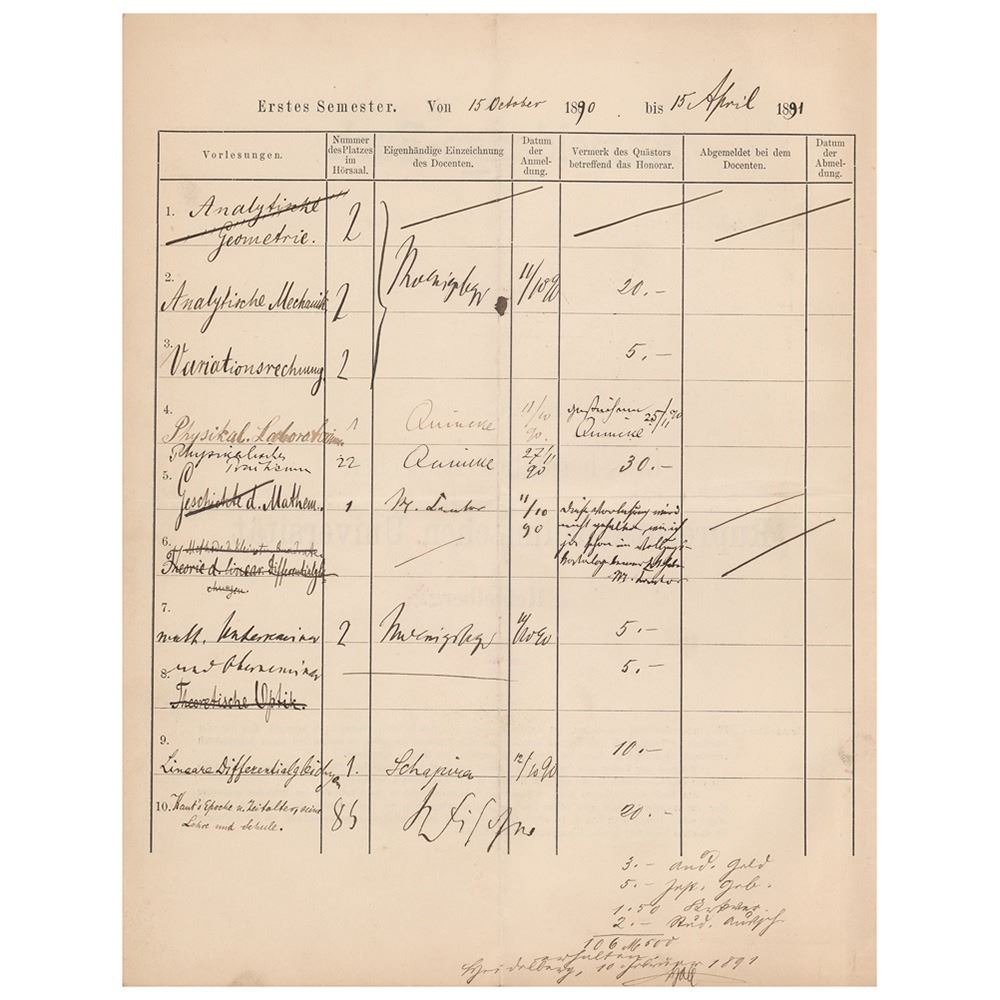 Erstes Semester. Von 15 October 1890. bis 15 April 1891
Vorlesungen.
Nummer des Platzes im Hörsaal.
Eigenhändige Einzeichnung des Docenten.
Datum der Anmeldung.
Vermerk des Quästors betreffend das Honorar.
Abgemeldet bei dem Docenten.
Datum der Abmeldung.
1. Analytische
Geometrie. 2
2.
Analytische Mechanik 2 Koenigsbgr 11/10 90 20.-
3.
Variationsrechnung 2 5.-
4.
Physikal. Laboratorium 1 Quincke 11/10 90. gestrichen 25/11 90 Quincke
Physikalisches 22 Quincke 27/11 90 30.-
5.
Geschichte d. Mathem. 1 M. Cantor 11/10 90
Diese Vorlesung wird
nicht gehalten, wie ich
M. Cantor
6. Methode d. kleinsten Quadrate
Theorie d. linear. Differentialglei-
chungen.
7.
math. Unterseminar 2 Koenigsbgr 90 5.-
und Oberseminar 5.-
8.
Theoretische Optik.
9.
Lineare Differentialgleichungen 1. Schapira 12/10 90 10.-
10. Kant's Epoche u. Zeitalter, seine
Lehre und Schule. 85 K Fischer 20.-
3.- Aud. Geld
5.-
1.50
2.- Stud.
106 M 50
erhalten.
Heidelberg, 10 Februar 1891